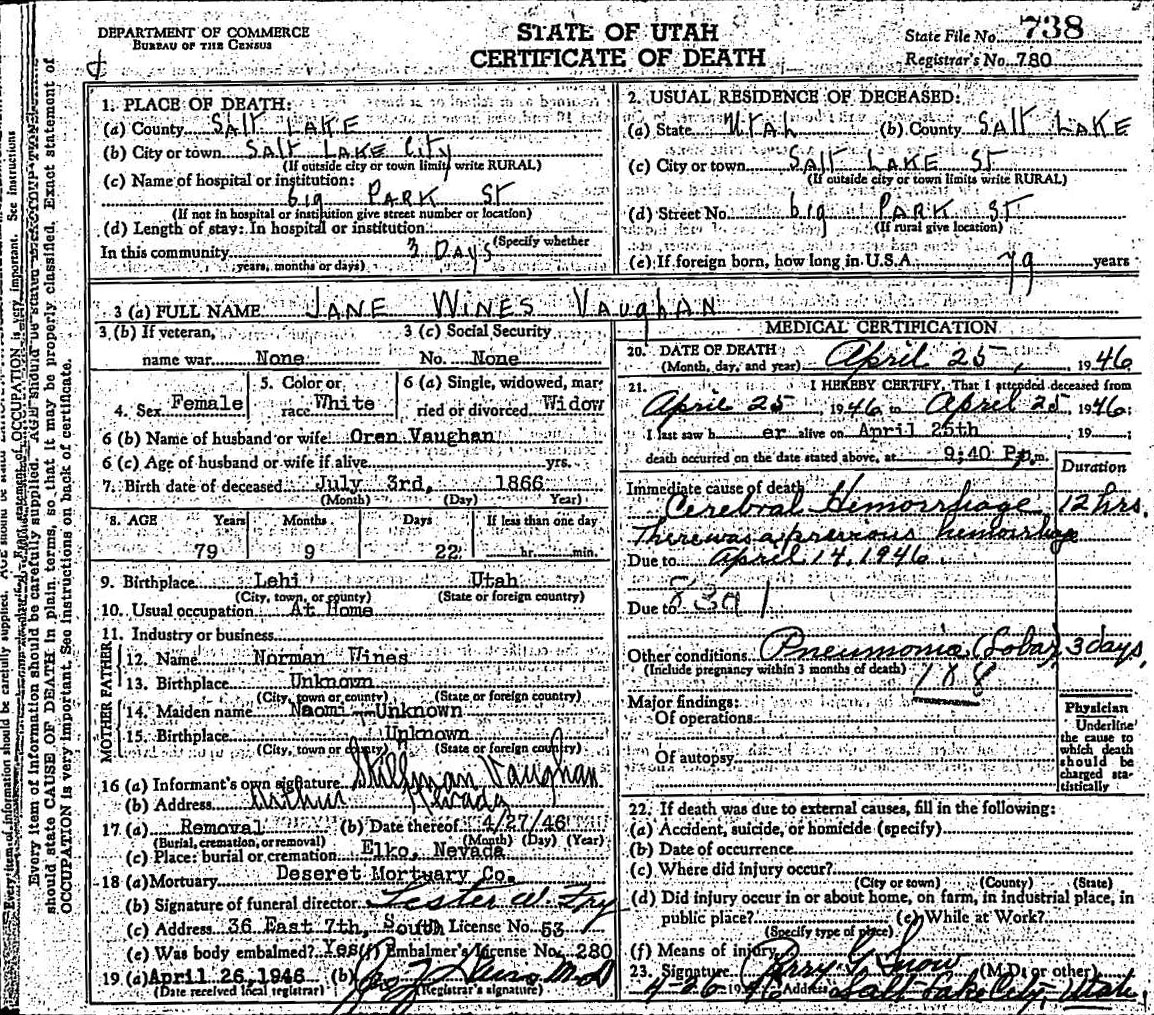 DEPARTMENT OF COMMERCE
BUREAU OF THE CENSUS
STATE OF UTAH
CERTIFICATE OF DEATH
State File No. 738
Registrar's No. 780
1. PLACE OF DEATH:
(a) County SALT LAKE
(b) City or town SALT LAKE City
(If outside city or town limits write RURAL)
(c) Name of hospital or institution:
619 PARK ST
(If not in hospital or institution give street number or location)
(d) Length of stay: In hospital or institution
(Specify whether
In this community 3 DAYS
years, months or days)
2. USUAL RESIDENCE OF DECEASED:
(a) State UTAH (b) County SALT LAKE
(c) City or town SALT LAKE ST
(If outside city or town limits write RURAL)
(d) Street No. 619 PARK ST
(If rural give location)
(e) If foreign born, how long in U.S.A. 79 years
3 (a) FULL NAME JANE WINES VAughAN
3 (b) If veteran,
name war None
3 (c) Social Security
No. None
4. Sex Female
5. Color or
race White
6 (a) Single, widowed, mar-
ried or divorced Widow
6 (b) Name of husband or wife Oren Vaughan
6 (c) Age of husband or wife if alive yrs.
7. Birth date of deceased July 3rd, 1866
(Month) (Day) Year)
8. AGE Years Months Days If less than one day
79 9 22 hr. min.
9. Birthplace Lehi Utah
(City, town, or county) (State or foreign country)
10. Usual occupation At Home
11. Industry or business
FATHER
12. Name Norman Wines
13. Birthplace Unknown
(City, town or county) (State or foreign country)
MOTHER
14. Maiden name Naomi Unknown
15. Birthplace Unknown
(City, town or county) (State or foreign country)
16 (a) Informant's own signature Stillman Vaughan
(b) Address Arthur Nevada
17 (a) Removal (b) Date thereof 4/27/46
(Burial, cremation, or removal) (Month) (Day) (Year)
(c) Place: burial or cremation Elko, Nevada
18 (a) Mortuary Deseret Mortuary Co.
(b) Signature of funeral director Lester W. Fry
(c) Address 36 East 7th, South License No. 53
(e) Was body embalmed? Yes (f) Embalmer's License No. 280
19 (a) April 26, 1946 (b) M.D
(Date received local registrar) Registrar's signature)
MEDICAL CERTIFICATION
20. DATE OF DEATH April 25, 1946
(Month, day, and year)
21. I HEREBY CERTIFY, That I attended deceased from
April 25, 1946 to April 25, 1946;
I last saw h er alive on April 25th, 19 ;
death occurred on the date stated above, at 9:40 P.p.m.
Duration
Immediate cause of death
Cerebral Hemorrhage 12 hrs.
There was a previous hemorrhage
Due to April 14, 1946
Due to 83a 1
Other conditions Pneumonia (Lobar) 3 days
(Include pregnancy within 3 months of death)
108
Major findings:
Of operations
Of autopsy
Physician
Underline
the cause to
which death
should be
charged sta-
tistically
22. If death was due to external causes, fill in the following:
(a) Accident, suicide, or homicide (specify)
(b) Date of occurrence
(c) Where did injury occur?
(City or town) (County) (State)
(d) Did injury occur in or about home, on farm, in industrial place, in
public place? (e) While at Work?
(Specify type of place)
(f) Means of injury
23. Signature Perry G. Snow (M.D. or other)
4-26-1946 Address Salt Lake City, Utah
Every item of information should be carefully supplied. AGE should be stated EXACTLY.
should state CAUSE OF DEATH in plain terms, so that it may be properly classified. Exact statement of
OCCUPATION is very important. See instructions on back of certificate.